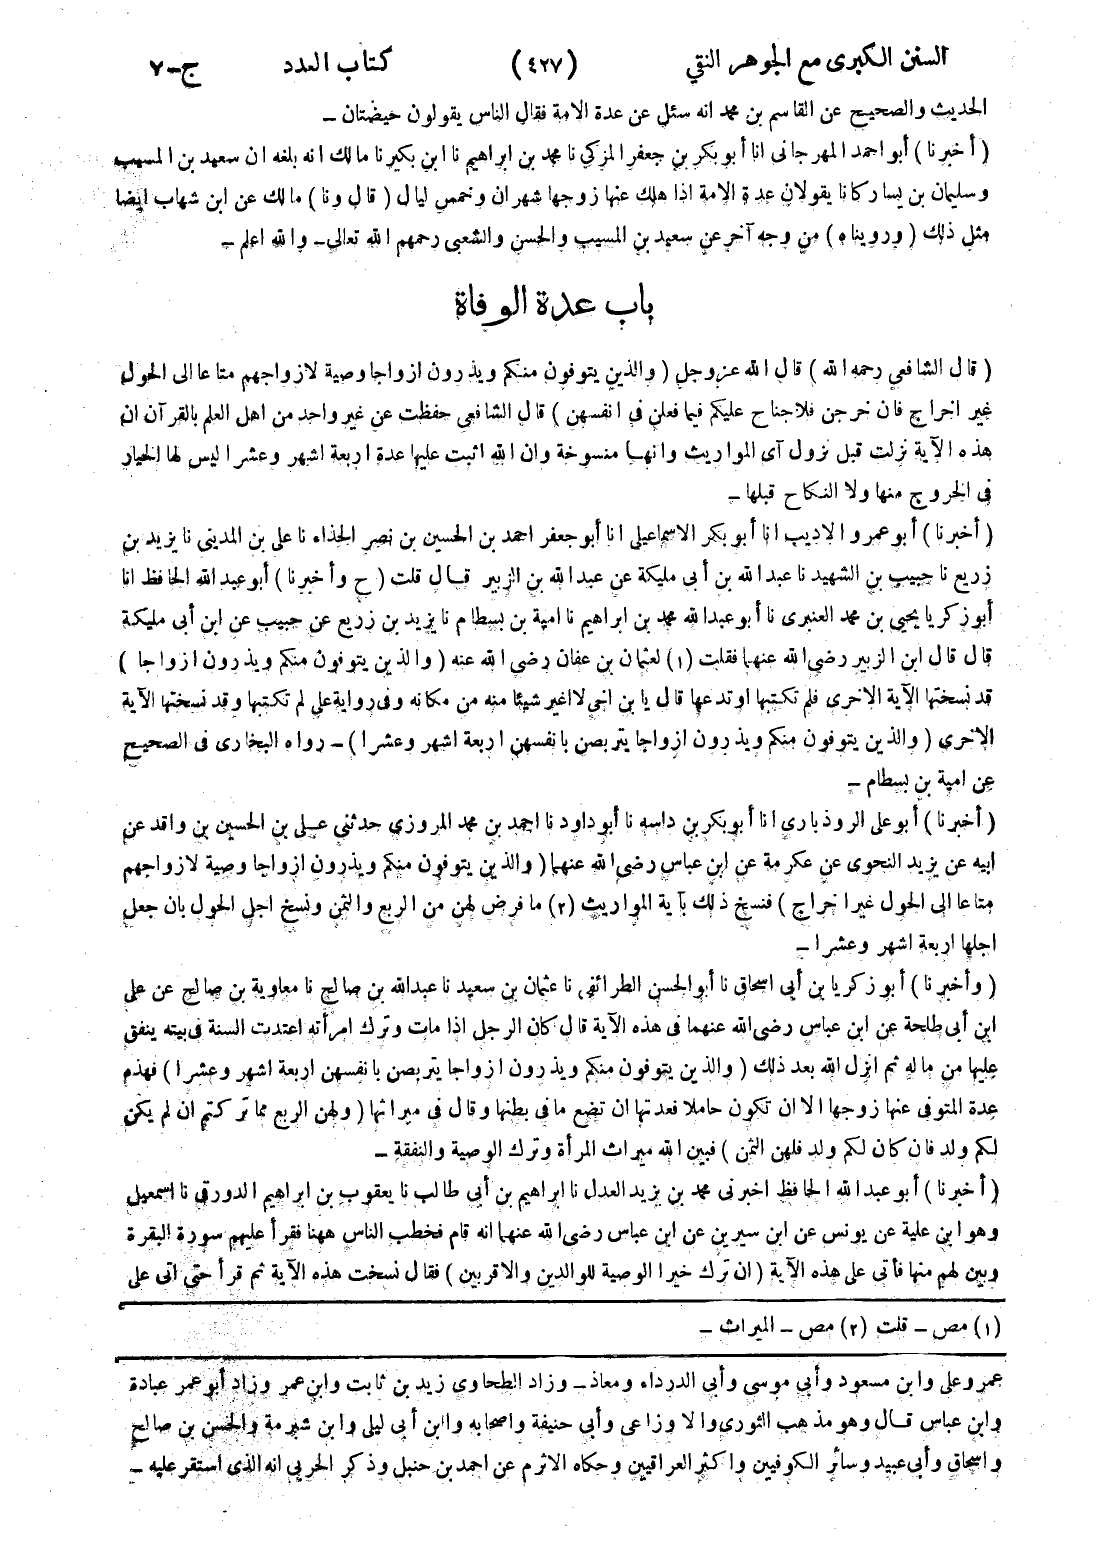 السنن الكبرى مع الجوهر النقي (٤٢٧) كتاب العدد ج-٧
الحديث والصحيح عن القاسم بن محمد انه سئل عن عدة الامة فقال الناس يقولون حيضتان -
( أخبرنا ) أبو احمد المهرجانى انا أبو بكر بن جعفر المزكي نا محمد بن ابراهيم نا ابن بكير نا مالك انه بلغه ان سعيد بن المسيب
وسليمان بن يسار كانا يقولان عدة الامة اذا هلك عنها زوجها شهران وخمس ليال ( قال ونا ) مالك عن ابن شهاب ايضا
مثل ذلك ( ورويناه ) من وجه آخر عن سعيد بن المسيب والحسن والشعبى رحمهم الله تعالى - والله اعلم -
باب عدة الوفاة
( قال الشافعي رحمه الله ) قال الله عز وجل ( والذين يتوفون منكم ويذرون ازواجا وصية لازواجهم متاعا الى الحول
غير اخراج فان خرجن فلا جناح عليكم فيما فعلن في انفسهن ) قال الشافعي حفظت عن غير واحد من اهل العلم بالقرآن ان
هذه الآية نزلت قبل نزول آى المواريث وانها منسوخة وان الله اثبت عليها عدة اربعة اشهر وعشرا ليس لها الخيار
فى الخروج منها ولا النكاح قبلها -
( أخبرنا ) أبو عمرو الاديب انا أبو بكر الاسماعيلى انا أبو جعفر احمد بن الحسين بن نصر الحذاء نا على بن المدينى نا يزيد بن
زريع نا حبيب بن الشهيد نا عبد الله بن أبى مليكة عن عبد الله بن الزبير قال قلت ( ح وأخبرنا ) أبو عبد الله الحافظ انا
أبو زكريا يحيى بن محمد العنبرى نا أبو عبد الله محمد بن ابراهيم نا امية بن بسطام نا يزيد بن زريع عن حبيب عن ابن أبى مليكة
قال قال ابن الزبير رضى الله عنهما فقلت (١) لعثمان بن عفان رضى الله عنه ( والذين يتوفون منكم ويذرون ازواجا )
قد نسختها الآية الاخرى فلم تكتبها او تدعها قال يا بن اخى لا اغير شيئا منه من مكانه وفى رواية على لم تكتبها وقد نسختها الآية
الاخرى ( والذين يتوفون منكم ويذرون ازواجا يتربصن بانفسهن اربعة اشهر وعشرا ) - رواه البخارى فى الصحيح
عن امية بن بسطام -
( أخبرنا ) أبو على الروذبارى انا أبو بكر بن داسه نا أبو داود نا احمد بن محمد المروزى حدثني على بن الحسين بن واقد عن
ابيه عن يزيد النحوى عن عكرمة عن ابن عباس رضى الله عنهما ( والذين يتوفون منكم ويذرون ازواجا وصية لازواجهم
متاعا الى الحول غير اخراج ) فنسخ ذلك بآية المواريث (٢) ما فرض لهن من الربع والثمن ونسخ اجل الحول بان جعل
اجلها اربعة اشهر وعشرا -
( وأخبرنا ) أبو زكريا بن أبى اسحاق نا أبو الحسن الطرائفى نا عثمان بن سعيد نا عبد الله بن صالح نا معاوية بن صالح عن على
ابن أبى طلحة عن ابن عباس رضى الله عنهما فى هذه الآية قال كان الرجل اذا مات وترك امرأته اعتدت السنة فى بيته ينفق
عليها من ماله ثم انزل الله بعد ذلك ( والذين يتوفون منكم ويذرون ازواجا يتربصن بانفسهن اربعة اشهر وعشرا ) فهذه
عدة المتوفى عنها زوجها الا ان تكون حاملا فعدتها ان تضع ما فى بطنها وقال فى ميراثها ( ولهن الربع مما تركتم ان لم يكن
لكم ولد فان كان لكم ولد فلهن الثمن ) فبين الله ميراث المرأة وترك الوصية والنفقة -
( أخبرنا ) أبو عبد الله الحافظ اخبرنى محمد بن يزيد العدل نا ابراهيم بن أبى طالب نا يعقوب بن ابراهيم الدورقى نا اسمعيل
وهو ابن علية عن يونس عن ابن سيرين عن ابن عباس رضى الله عنهما انه قام فخطب الناس ههنا فقرأ عليهم سورة البقرة
وبين لهم منها فأتى على هذه الآية ( ان ترك خيرا الوصية للوالدين والاقربين ) فقال نسخت هذه الآية ثم قرأ حتى اتى على
(١) مص - قلت (٢) مص - الميراث -
عمر وعلى وابن مسعود وأبى موسى وأبى الدرداء ومعاذ - وزاد الطحاوى زيد بن ثابت وابن عمر وزاد أبو عمر عبادة
وابن عباس قال وهو مذهب الثورى والاوزاعى وأبى حنيفة واصحابه وابن أبى ليلى وابن شبرمة والحسن بن صالح
واسحاق وأبى عبيد وسائر الكوفيين واكثر العراقيين وحكاه الاثرم عن احمد بن حنبل وذكر الخرقي انه الذى استقر عليه -